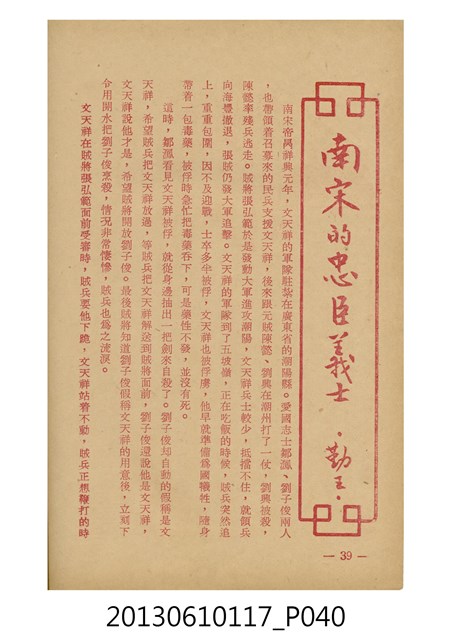 南宋的忠臣義士 ·勤王·
南宋帝昺祥興元年，文天祥的軍隊駐紮在廣東省的潮陽縣。愛國志士鄒㵯、劉子俊兩人
，也帶領着召募來的民兵支援文天祥，後來跟元賊陳懿、劉興在潮州打了一仗，劉興被殺，
陳懿率殘兵逃走。賊將張弘範於是發動大軍進攻潮陽，文天祥兵士較少，抵擋不住，就領兵
向海豐撤退，張賊仍發大軍追擊。文天祥的軍隊到了五坡嶺，正在吃飯的時候，賊兵突然追
上，重重包圍，因不及迎戰，士卒多半被俘，文天祥也被俘虜，他早就準備爲國犧牲，隨身
帶着一包毒藥，被俘時急忙把毒藥吞下，可是藥性不發，並沒有死。
這時，鄒㵯看見文天祥被俘，就從身邊抽出一把劍來自殺了。劉子俊却自動的假稱是文
天祥，希望賊兵把文天祥放過，等賊兵把文天祥解送到賊將面前，劉子俊還說他是文天祥，
文天祥說他才是，希望賊將開放劉子俊。最後賊將知道劉子俊假稱文天祥的用意後，立刻下
令用開水把劉子俊烹殺，情況非常悽慘，賊兵也爲之流淚。
文天祥在賊將張弘範面前受審時，賊兵要他下跪，文天祥站着不動，賊兵正想鞭打的時
— 39 —
20130610117_P040